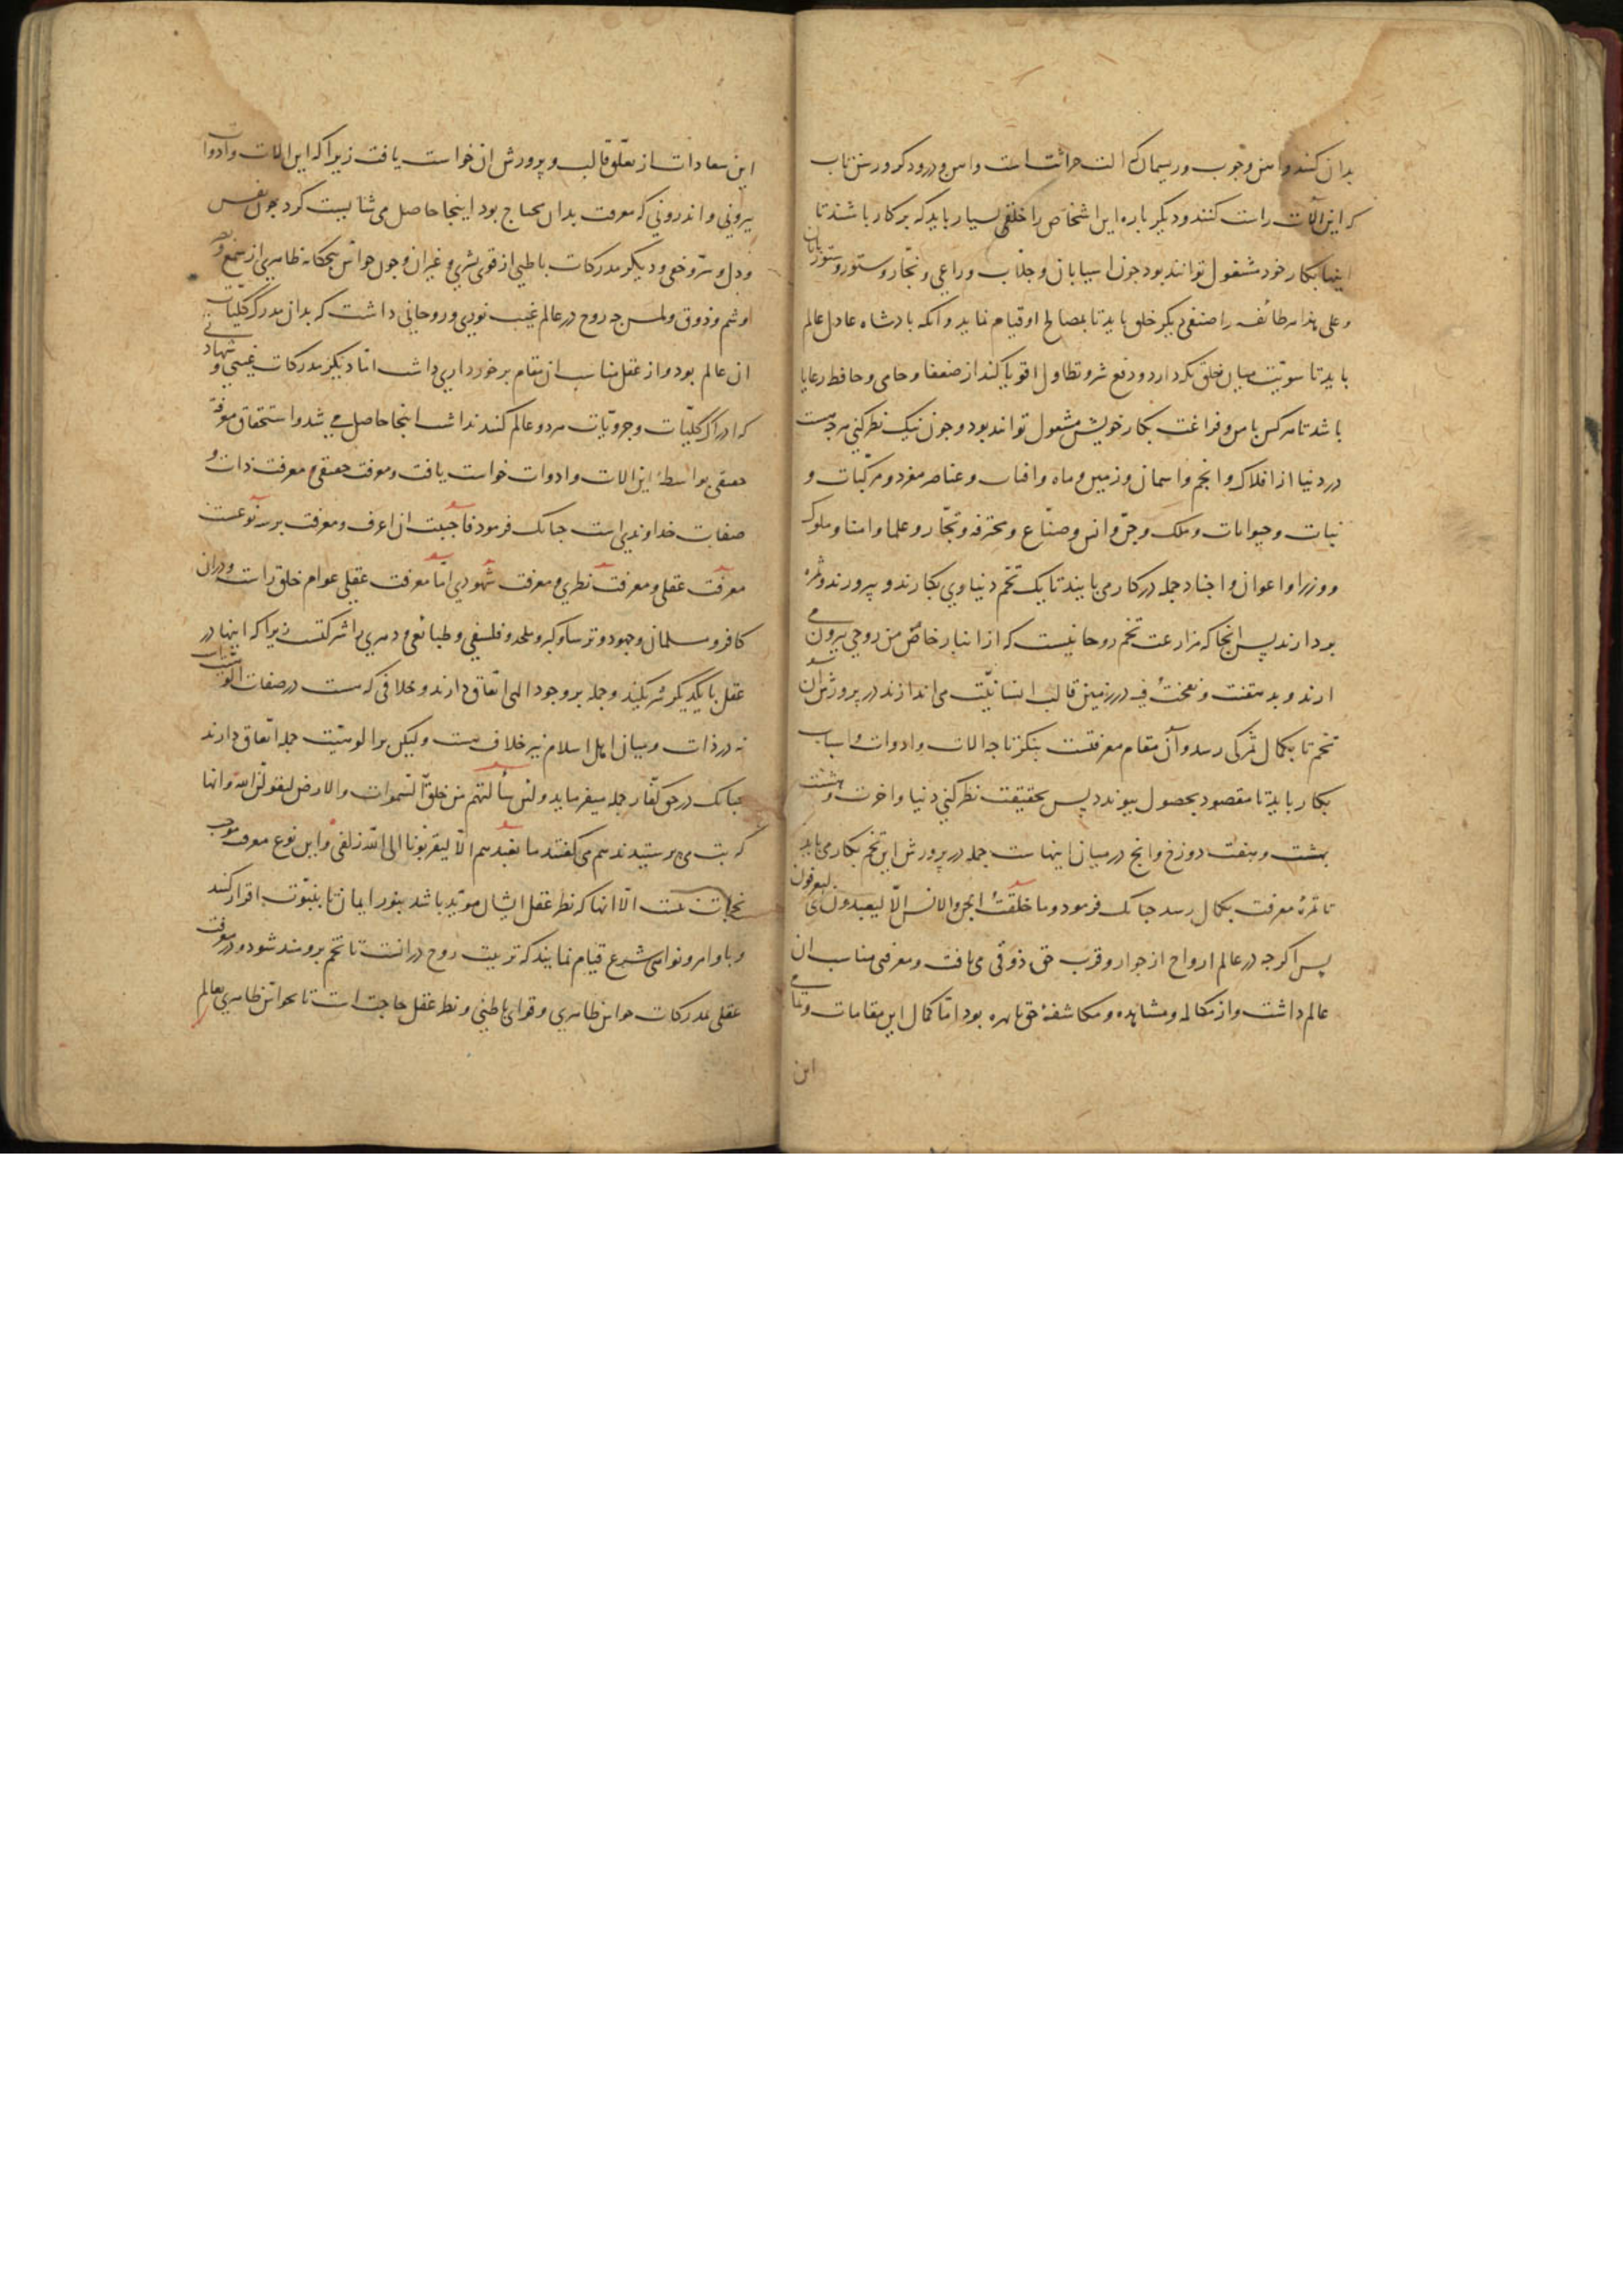 بدان کنند و اهن و چوب و ریسمان که الت حراثت است و اهن و درودکر و رسن تاب
که این الات راست کنند و دیکر باره این اشخاص را خلقی بسیار باید که بر کار باشند تا
اینها بکار خود مشغول توانند بود چون اسیابان و جلاب و راعی و نجار و ستور و ستوربان
و علی هذا هر طائفه را صنفی دیکر خلق باید تا بمصالح او قیام نماید و انکه بادشاه عادل عالم
باید تا سویت میان خلق نکه دارد و دفع شر و تطاول اقویا کند از ضعفا و حامی و حافظ رعایا
باشد تا هر کس بامن و فراغت بکار خویش مشغول تواند بود و چون نیک نظر کنی هر چه هست
در دنیا از افلاک و انجم و اسمان و زمین و ماه و افتاب و عناصر مفرد و مرکبات و
نبات و حیوانات و ملک و جن و انس و صناع و محترفه و تجار و علما و امنا و ملوک
و وزرا و اعوان و اجناد جمله در کار می بایند تا یک تخم دنیاوی بکارند و بپرورند و ثمره
بردارند پس انجا که مزارعت تخم روحانیست که از انبار خاص من روحی بیرون می
ارند و بدهقنت و نفخت فیه در زمین قالب انسانیت می اندازند در پرورش ان
تخم تا بکمال ثمرکی رسد و آن مقام معرفتست بنکر تا چه الات و ادوات و اسباب
بکار باید تا مقصود بحصول پیوندد پس بحقیقت نظر کنی دنیا و اخرت و هشت
بهشت و هفت دوزخ و انچ در میان اینهاست جمله در پرورش این تخم بکار می باید
تا ثمرهٔ معرفت بکمال رسد چنانک فرمود و ما خلقت الجن والانس الا لیعبدون ای لیعرفون
پس اکرچه در عالم ارواح از جوار و قرب حق ذوقی می یافت و معرفتی مناسب ان
عالم داشت و از مکالمه و مشاهده و مکاشفهٔ حق بابهره بود اما کمال این مقامات و تمامی
این
این سعادات از تعلق قالب و پرورش ان خواست یافت زیرا که این الات و ادوات
بیرونی و اندرونی که معرفت بدان محتاج بود اینجا حاصل می شایست کرد چون نفس
و دل و سر و خفی و دیکر مدرکات باطنی از قوی بشری و غیر ان و چون حواس پنجکانه ظاهری از سمع و بصر
و شم و ذوق و لمس چه روح در عالم غیب نوری و روحانی داشت که بدان مدرک کلیات
ان عالم بود و از عقل مناسب ان مقام برخورداری داشت اما دیکر مدرکات غیبی و شهادتی
که ادراک کلیات و جزویات هر دو عالم کند نداشت اینجا حاصل می شد و استحقاق معرفة
حقیقی بواسطهٔ این الات و ادوات خواست یافت و معرفت حقیقی معرفت ذات و
صفات خداوندی است چنانک فرمود فاحببت ان اعرف و معرفت بر سه نوعست
معرفت عقلی و معرفت نظری و معرفت شهودی اما معرفت عقلی عوام خلق راست و دران
کافر و مسلمان و جهود و ترسا و کبر و ملحد و فلسفی و طبائعی و دهری را شرکتست زیرا که اینها در
عقل با یکدیکر شریکند و جمله بر وجود الهی اتفاق دارند و خلافی که هست در صفات الوهیت است
نه در ذات و میان اهل اسلام نیز خلاف هست ولیکن بر الوهیت جمله اتفاق دارند
چنانک در حق کفار جمله میفرماید ولئن سألتهم من خلق السموات والارض لیقولن الله و انها
که بت می پرستیدند هم می کفتند ما نعبدهم الا لیقربونا الی الله زلفی و این نوع معرفت موجب
نجات نیست الا انها که نظر عقل ایشان موید باشد بنور ایمان تا بنبوت اقرار کنند
و باوامر و نواهی شرع قیام نمایند که تربیت روح در انست تا تخم برومند شود و در معرفت
عقلی بمدرکات حواس ظاهری و قوای باطنی و نظر عقل حاجت است تا بحواس ظاهری بعالم